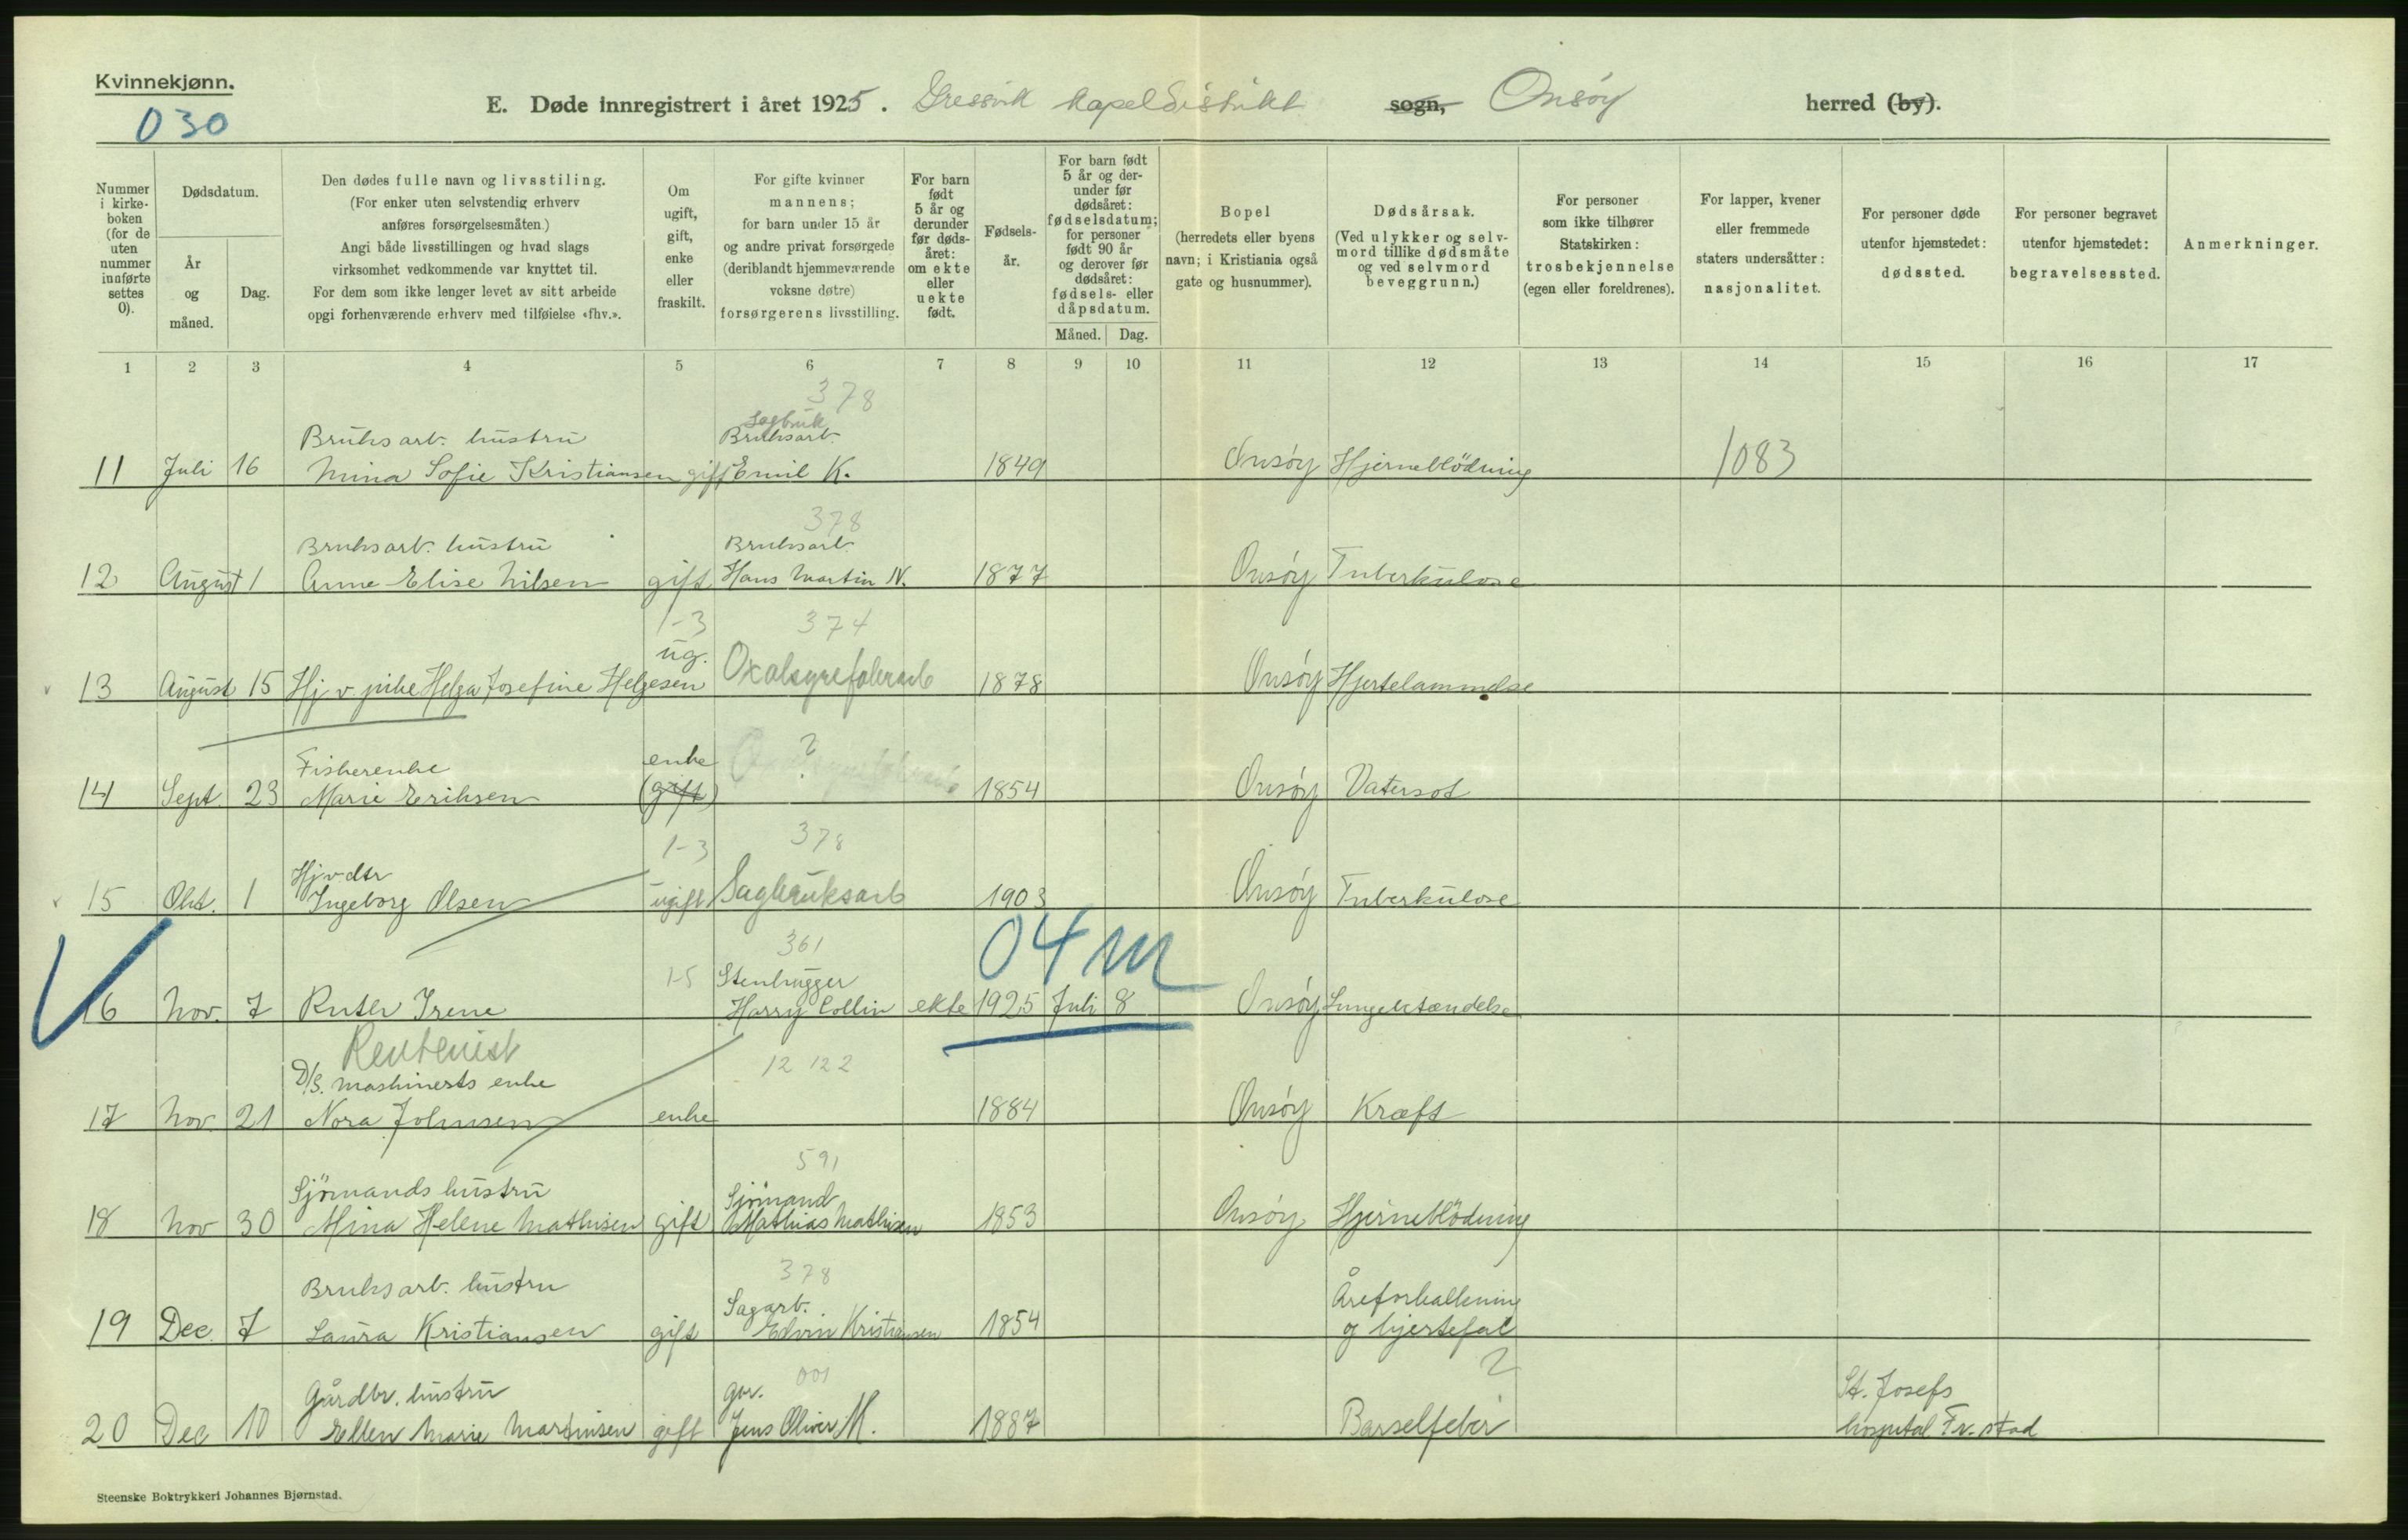 Kvinnekjønn.
030
E. Døde innregistrert i året 1925. Gressvik kapeldistrikt sogn, Onsøy herred (by).
Nummer i kirke-boken (for de uten nummer innførte settes 0).
Dødsdatum.
År og måned.
Dag.
Den dødes fulle navn og livsstiling.
(For enker uten selvstendig erhverv
anføres forsørgelsesmåten.)
Angi både livsstillingen og hvad slags
virksomhet vedkommende var knyttet til.
For dem som ikke lenger levet av sitt arbeide
opgi forhenværende erhverv med tilføielse «fhv.».
Om ugift, gift, enke eller fraskilt.
For gifte kvinner
mannens;
for barn under 15 år
og andre privat forsørgede
(deriblandt hjemmeværende
voksne døtre)
forsørgerens livsstilling.
For barn født 5 år og derunder før døds-året: om ekte eller uekte født.
Fødsels-år.
For barn født 5 år og der-under før dødsåret: fødselsdatum; for personer født 90 år og derover før dødsåret: fødsels- eller dåpsdatum.
Måned. Dag.
Bopel
(herredets eller byens
navn; i Kristiania også
gate og husnummer).
Dødsårsak.
(Ved ulykker og selv-
mord tillike dødsmåte
og ved selvmord
beveggrunn.)
For personer
som ikke tilhører
Statskirken:
trosbekjennelse
(egen eller foreldrenes).
For lapper, kvener
eller fremmede
staters undersåtter:
nasjonalitet.
For personer døde
utenfor hjemstedet:
dødssted.
For personer begravet
utenfor hjemstedet:
begravelsessted.
Anmerkninger.
1 2 3 4 5 6 7 8 9 10 11 12 13 14 15 16 17
378
Sagbruk
Bruksarb. hustru Bruksarb.
11 Juli 16 Mina Sofie Kristiansen gift Emil K. 1849 Onsøy Hjerneblödning 1083
378
Bruksarb. hustru Bruksarb.
12 August 1 Anne Elise Nilsen gift Hans Martin N. 1877 Onsøy Tuberkulose
1-3 374
ug.
13 August 15 Hj. v. pike Helga Josefine Helgesen Oxalsyrefabrarb 1878 Onsøy Hjertelammelse
Fiskerenke enke ?
14 Sept. 23 Marie Eriksen (gift) 1854 Onsøy Vatersot
1-3 378
Hj v dtr
15 Okt. 1 Ingeborg Olsen ugift Sagbruksarb 1903 Onsøy Tuberkulose
361 04 m
1-5 Stenhugger
16 Nov. 7 Ruth Irene Harry Collin ekte 1925 Juli 8 Onsøy Lungebetændelse
Rentenist
D/S. maskinists enke 12 122
17 Nov. 21 Nora Johnsen enke 1884 Onsøy Kræft
591
Sjömands hustru Sjömand
18 Nov 30 Mina Helene Mathisen gift Mathias Mathisen 1853 Onsøy Hjerneblödning
378
Bruksarb. hustru Sagarb. Åreforkalkning
19 Dec. 7 Laura Kristiansen gift Edvin Kristiansen 1854 og hjertefeil
2
001
Gårdbr. hustru gbr. St. Josefs
20 Dec 10 Ellen Marie Martinsen gift Jens Oliver M. 1887 Barselfeber hospital Fr.stad
Steenske Boktrykkeri Johannes Bjørnstad.